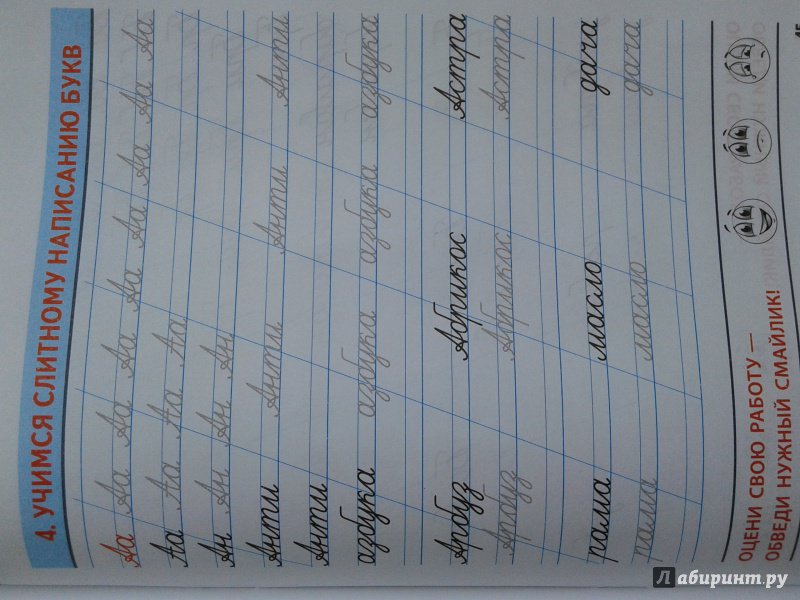 4. УЧИМСЯ СЛИТНОМУ НАПИСАНИЮ БУКВ
Аа Аа Аа Аа Аа Аа Аа Аа Аа
Аа Аа Аа Аа
Ан Ан Ан Ан
Анти Анти Анти Анти
Анти
азбука азбука азбука азбука
Арбуз Абрикос Астра
Арбуз Абрикос Астра
рама масло дача
рама масло дача
ОЦЕНИ СВОЮ РАБОТУ —
ОБВЕДИ НУЖНЫЙ СМАЙЛИК!
15
Лабиринт.ру